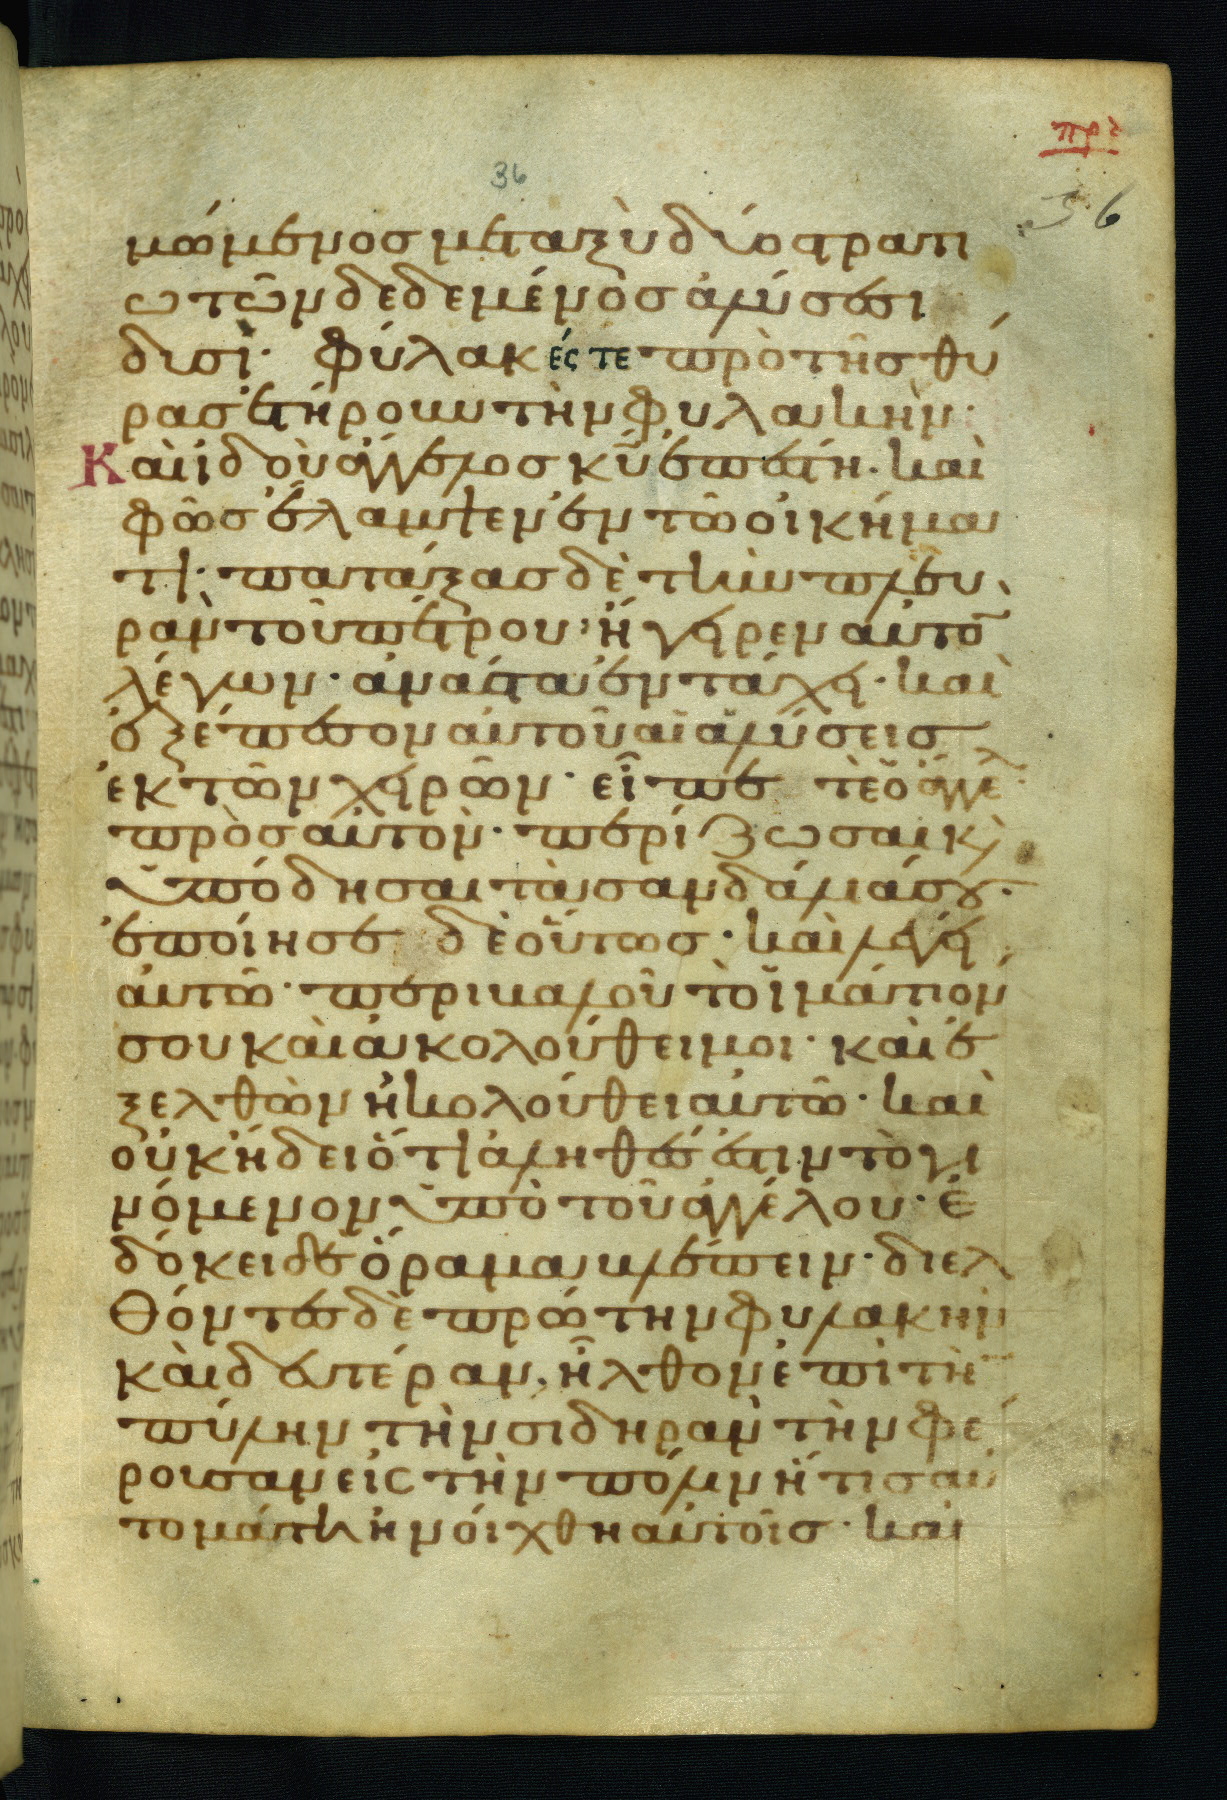 πρξ
36
36
μώμενος μεταξὺ δύο στρατι
ωτῶν δεδεμένος ἁλύσεσι
δυσί· φύλακές τε πρὸ τῆς θύ
ρας ἐτήρουν τὴν φυλακήν·
Καὶ ἰδοὺ ἄγγελος κῡ ἐπέστη· καὶ
φῶς ἔλαμψεν ἐν τῶ οἰκήμα
τι· πατάξας δὲ τὴν πλευ
ρὰν τοῦ πέτρου· ἤγειρεν αὐτὸ̄
λέγων· ἀνάστα ἐν τάχει· καὶ
ἐξέπεσον αὐτοῦ αἱ ἁλύσεις
ἐκ τῶν χειρῶν· εἶπε τε ὁ ἄγγελ
πρὸς αὐτόν· περίζωσαι κ̀
ὑπόδησαι τὰ σανδάλιά σου·
ἐποίησε δὲ οὕτως· καὶ λέγει
αὐτῶ· περιβαλοῦ τὸ ἱμάτιόν
σου καὶ ἀκολούθει μοι· καὶ ἐ
ξελθὼν ἠκολούθει αὐτῶ· καὶ
οὐκ ἤδει ὅτι ἀληθές ἐστιν τὸ γι
νόμενον ὑπὸ τοῦ ἀγγέλου· ἐ
δόκει δὲ ὅραμα βλέπειν· διελ
θόντες δὲ πρώτην φυλακὴν
καὶ δευτέραν, ἦλθον ἐπὶ τὴ̄
πύλην τὴν σιδηρὰν τὴν φέ
ρουσαν εἰς τὴν πόλιν ἥτις αὐ
τομάτη ἠνοίχθη αὐτοῖς· καὶ